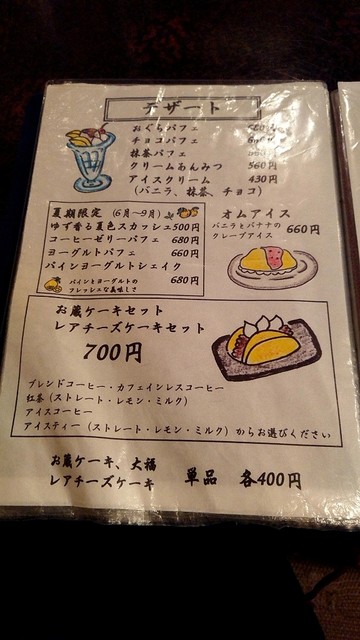 デザート
おぐらパフェ
チョコパフェ
抹茶パフェ
クリームあんみつ 560円
アイスクリーム 430円
(バニラ、抹茶、チョコ)
夏期限定 (6月~9月)
ゆず香る夏色スカッシュ500円
コーヒーゼリーパフェ 680円
ヨーグルトパフェ 660円
パインヨーグルトシェイク
パインとヨーグルトの
フレッシュな美味しさ
680円
オムアイス
バニラとバナナの
クレープアイス
660円
お蔵ケーキセット
レアチーズケーキセット
700円
ブレンドコーヒー・カフェインレスコーヒー
紅茶(ストレート・レモン・ミルク)
アイスコーヒー
アイスティー(ストレート・レモン・ミルク)からお選びください
お蔵ケーキ、大福
レアチーズケーキ
単品 各400円